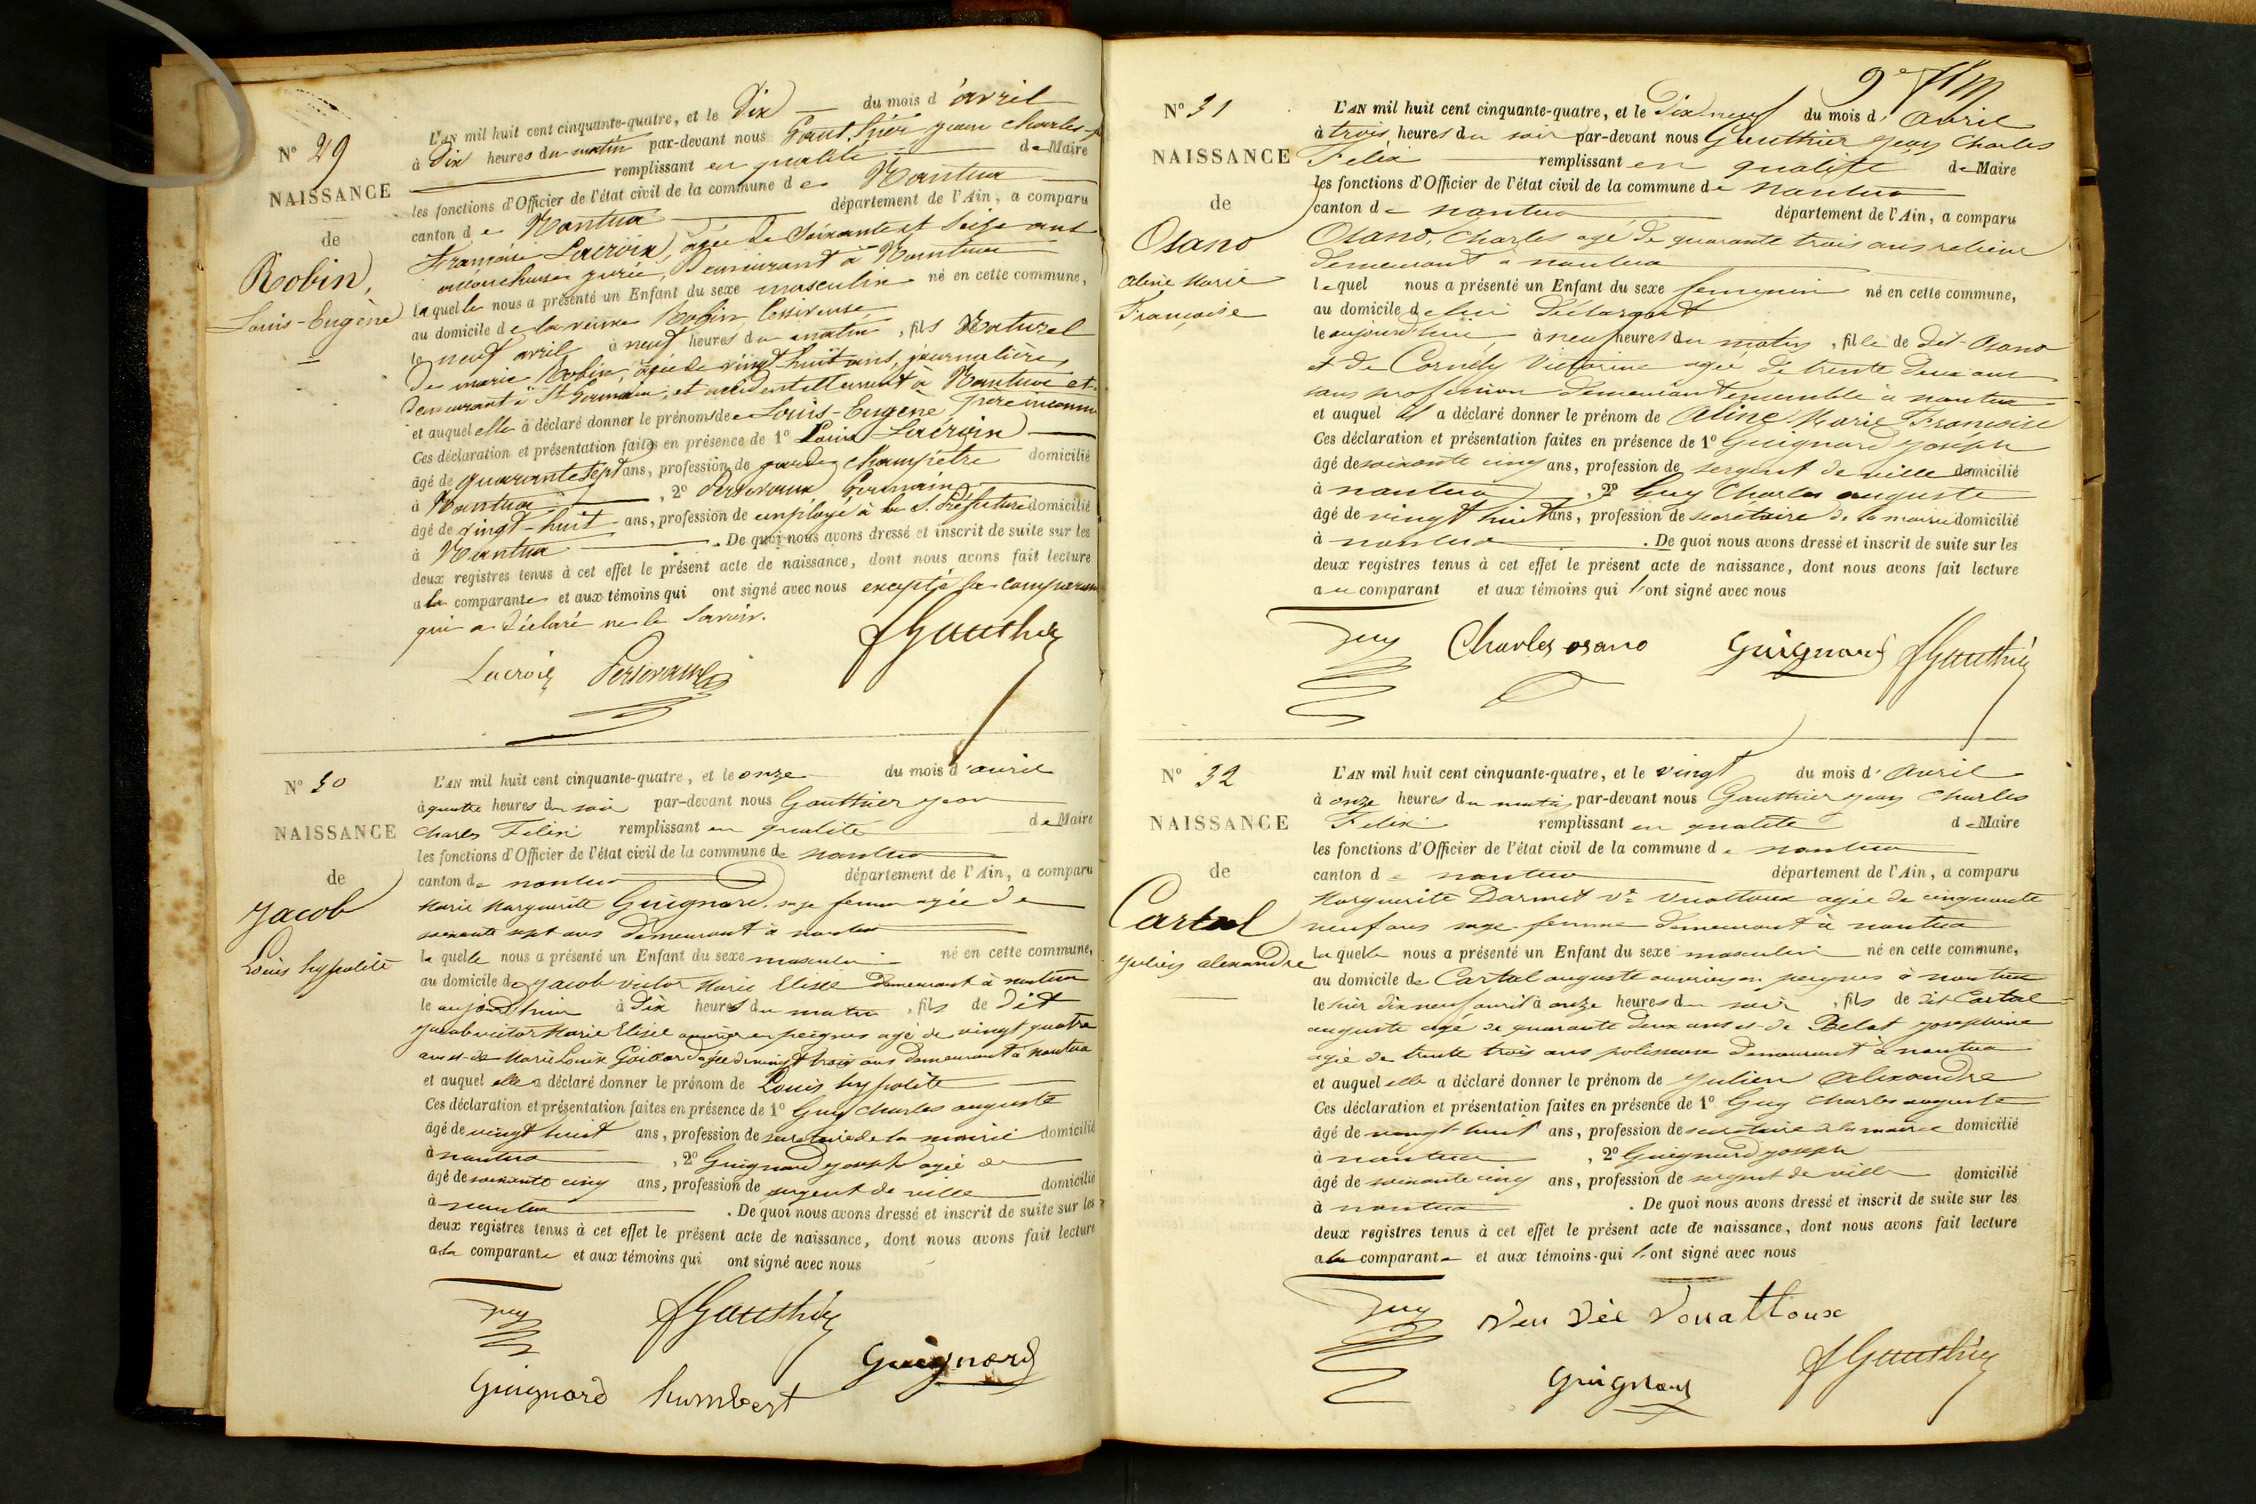 N° 29
NAISSANCE
de
Robin,
Louis-Eugène
L'AN mil huit cent cinquante-quatre, et le Dix du mois d'avril
à Dix heures du matin par-devant nous Gauthier jean charles
remplissant en qualité de Maire
les fonctions d'Officier de l'état civil de la commune de Nantua
canton de Nantua département de l'Ain, a comparu
Françoise Lacroix, agée de Soixante et Seize ans
accoucheuse jurée, Demeurant à Nantua
laquelle nous a présenté un Enfant du sexe masculin né en cette commune,
au domicile de la veuve Robin lessiveuse
le neuf avril à neuf heures du matin, fils Naturel
De marie Robin, agée de vingt-huit ans, journalière,
Demeurant à St Germain, et accidentellement à Nantua et
et auquel elle a déclaré donner le prénoms de Louis-Eugène père inconnu
Ces déclaration et présentation faites en présence de 1° Louis Lacroix
âgé de quarante sept ans, profession de garde champêtre domicilié
à Nantua, 2° Perseraux Germain
âgé de vingt-huit ans, profession de employé à la S. Préfecture domicilié
à Nantua. De quoi nous avons dressé et inscrit de suite sur les
deux registres tenus à cet effet le présent acte de naissance, dont nous avons fait lecture
a la comparante et aux témoins qui ont signé avec nous excepté la comparante
qui a déclaré ne le savoir.
Lacroix FGauthier
N° 30
NAISSANCE
de
Jacob
Louis hyppolite
L'AN mil huit cent cinquante-quatre, et le onze du mois d'avril
à quatre heures du soir par-devant nous Gauthier jean
Charles Felix remplissant en qualité de Maire
les fonctions d'Officier de l'état civil de la commune de nantua
canton de nantua département de l'Ain, a comparu
Marie Marguerite Guignard sage femme agée de
soixante sept ans demeurant à nantua
laquelle nous a présenté un Enfant du sexe masculin né en cette commune,
au domicile de Jacob victor Marie Elisée demeurant à nantua
le aujourdhui à dix heures du matin, fils de dit
Jacob victor Marie Elisée ouvrier en peignes agé de vingt quatre
ans et de Marie Louise agée de vingt trois ans demeurant à nantua
et auquel elle a déclaré donner le prénom de Louis hyppolite
Ces déclaration et présentation faites en présence de 1° Guy Charles auguste
âgé de vingt huit ans, profession de secretaire de la mairie domicilié
à nantua, 2° Guignard joseph agée de
âgé de soixante cinq ans, profession de sergent de ville domicilié
à nantua. De quoi nous avons dressé et inscrit de suite sur les
deux registres tenus à cet effet le présent acte de naissance, dont nous avons fait lecture
a la comparante et aux témoins qui ont signé avec nous
Guy FGauthier
Guignard
Guignard humbert
N° 31
NAISSANCE
de
Osano
Aline Marie
Françoise
L'AN mil huit cent cinquante-quatre, et le Dix neuf du mois d'Avril
à trois heures du soir par-devant nous Gauthier jean Charles
Félix remplissant en qualité de Maire
les fonctions d'Officier de l'état civil de la commune de nantua
canton de nantua département de l'Ain, a comparu
Osano, Charles agé de quarante trois ans relieur
demeurant à nantua
lequel nous a présenté un Enfant du sexe feminin né en cette commune,
au domicile de lui déclarant
le aujourdhui à neuf heures du matin, fille de dit Osano
et de Cornély Victorine agée de trente deux ans
sans profession demeurant ensemble à nantua
et auquel il a déclaré donner le prénom de Aline Marie Françoise
Ces déclaration et présentation faites en présence de 1° Guignard joseph
âgé de soixante cinq ans, profession de sergent de ville domicilié
à nantua, 2° Guy Charles auguste
âgé de vingt huit ans, profession de secretaire de la mairie domicilié
à nantua. De quoi nous avons dressé et inscrit de suite sur les
deux registres tenus à cet effet le présent acte de naissance, dont nous avons fait lecture
au comparant et aux témoins qui l'ont signé avec nous
Guy Charles osano Guignard FGauthier
N° 32
NAISSANCE
de
Cartal
Julien alexandre
L'AN mil huit cent cinquante-quatre, et le vingt du mois d'Avril
à onze heures du matin, par-devant nous Gauthier jean Charles
Felix remplissant en qualité de Maire
les fonctions d'Officier de l'état civil de la commune de nantua
canton de nantua département de l'Ain, a comparu
Marguerite Darmet Ve Vuattoux agée de cinquante
neuf ans sage femme demeurant à nantua
laquelle nous a présenté un Enfant du sexe masculin né en cette commune,
au domicile de Cartal auguste ouvrier en peignes à nantua
le hier dix neuf avril à onze heures du soir, fils de dit Cartal
auguste agé de quarante deux ans et de Belat josephine
agée de trente trois ans polisseuse demeurant à nantua
et auquel elle a déclaré donner le prénom de Julien Alexandre
Ces déclaration et présentation faites en présence de 1° Guy Charles auguste
âgé de vingt-huit ans, profession de secretaire à la mairie domicilié
à nantua, 2° Guignard joseph
âgé de soixante cinq ans, profession de sergent de ville domicilié
à nantua. De quoi nous avons dressé et inscrit de suite sur les
deux registres tenus à cet effet le présent acte de naissance, dont nous avons fait lecture
a la comparante et aux témoins qui l'ont signé avec nous
Guy Veu Vée Vouattoux
Guignard FGauthier